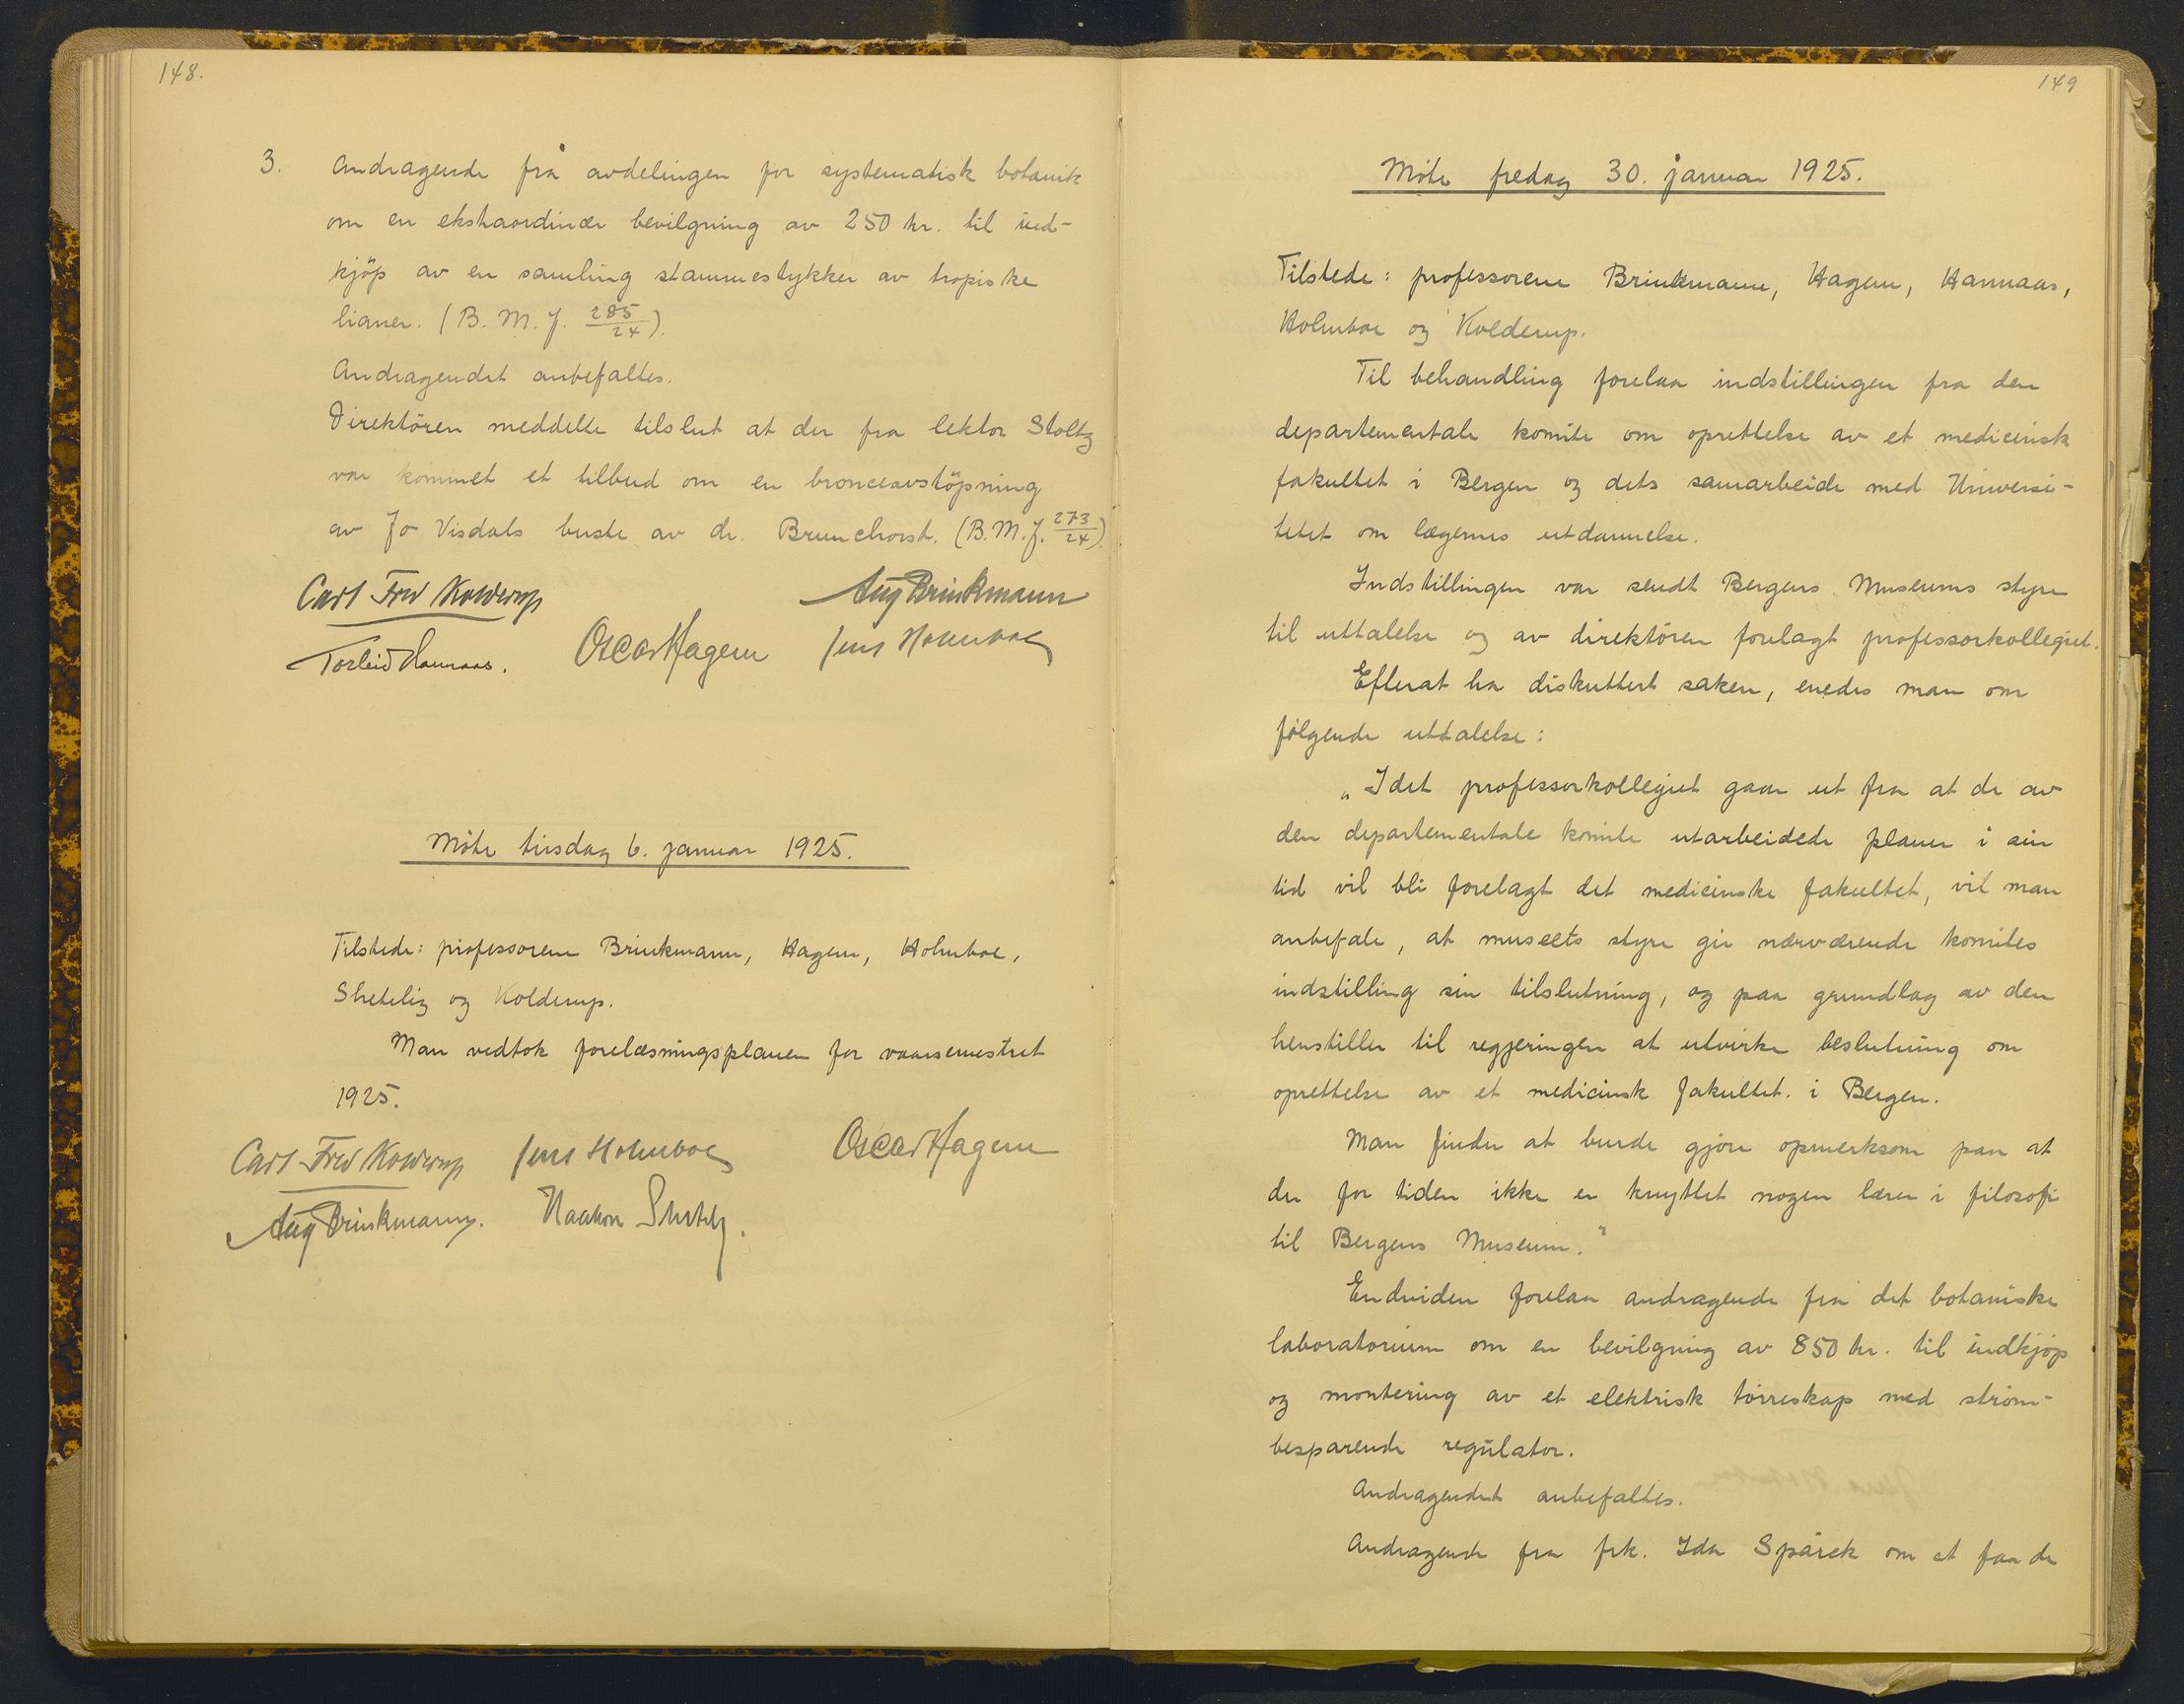 148.
3. Andragende fra avdelingen for systematisk botanik
om en ekstraordinær bevilgning av 250 kr. til ind-
kjöp av en samling stammestykker av tropiske
lianer. (B. M. J. 285/24).
Andragendet anbefaltes.
Direktören meddelte tilslut at der fra lektor Stoltz
var kommet et tilbud om en bronceavstöpning
av Jo Visdals buste av dr. Brunchorst. (B. M. J. 273/24)
Carl Fred Kolderup
Aug Brinkmann
Torleiv Hannaas.
Oscar Hagem
Jens Holmboe
Möte tirsdag 6. januar 1925.
Tilstede: professorene Brinkmann, Hagem, Holmboe,
Shetelig og Kolderup.
Man vedtok forelæsningsplanen for vaarsemestret
1925.
Carl Fred Kolderup
Jens Holmboe
Oscar Hagem
Aug Brinkmann.
Haakon Shetelig.
149
Möte fredag 30. januar 1925.
Tilstede: professorene Brinkmann, Hagem, Hannaas,
Holmboe og Kolderup.
Til behandling forelaa indstillingen fra den
departementale komite om oprettelse av et medicinsk
fakultet i Bergen og dets samarbeide med Universi-
tetet om lægernes utdannelse.
Indstillingen var sendt Bergens Museums styre
til uttalelse og av direktören forelagt professorkollegiet.
Efterat ha diskuttert saken, enedes man om
fölgende uttalelse:
„Idet professorkollegiet gaar ut fra at de av
den departementale komite utarbeidede planer i sin
tid vil bli forelagt det medicinske fakultet, vil man
anbefale, at museets styre gir nærværende komites
indstilling sin tilslutning, og paa grundlag av den
henstiller til regjeringen at utvirke beslutning om
oprettelse av et medicinsk fakultet. i Bergen.
Man finder at burde gjöre opmerksom paa at
der for tiden ikke er knyttet nogen lærer i filosofi
til Bergens Museum."
Endvidere forelaa andragende fra det botaniske
laboratorium om en bevilgning av 850 kr. til indkjöp
og montering av et elektrisk törreskap med ström-
besparende regulator.
Andragendet anbefaltes.
Andragende fra frk. Ida Spärck om at faa de